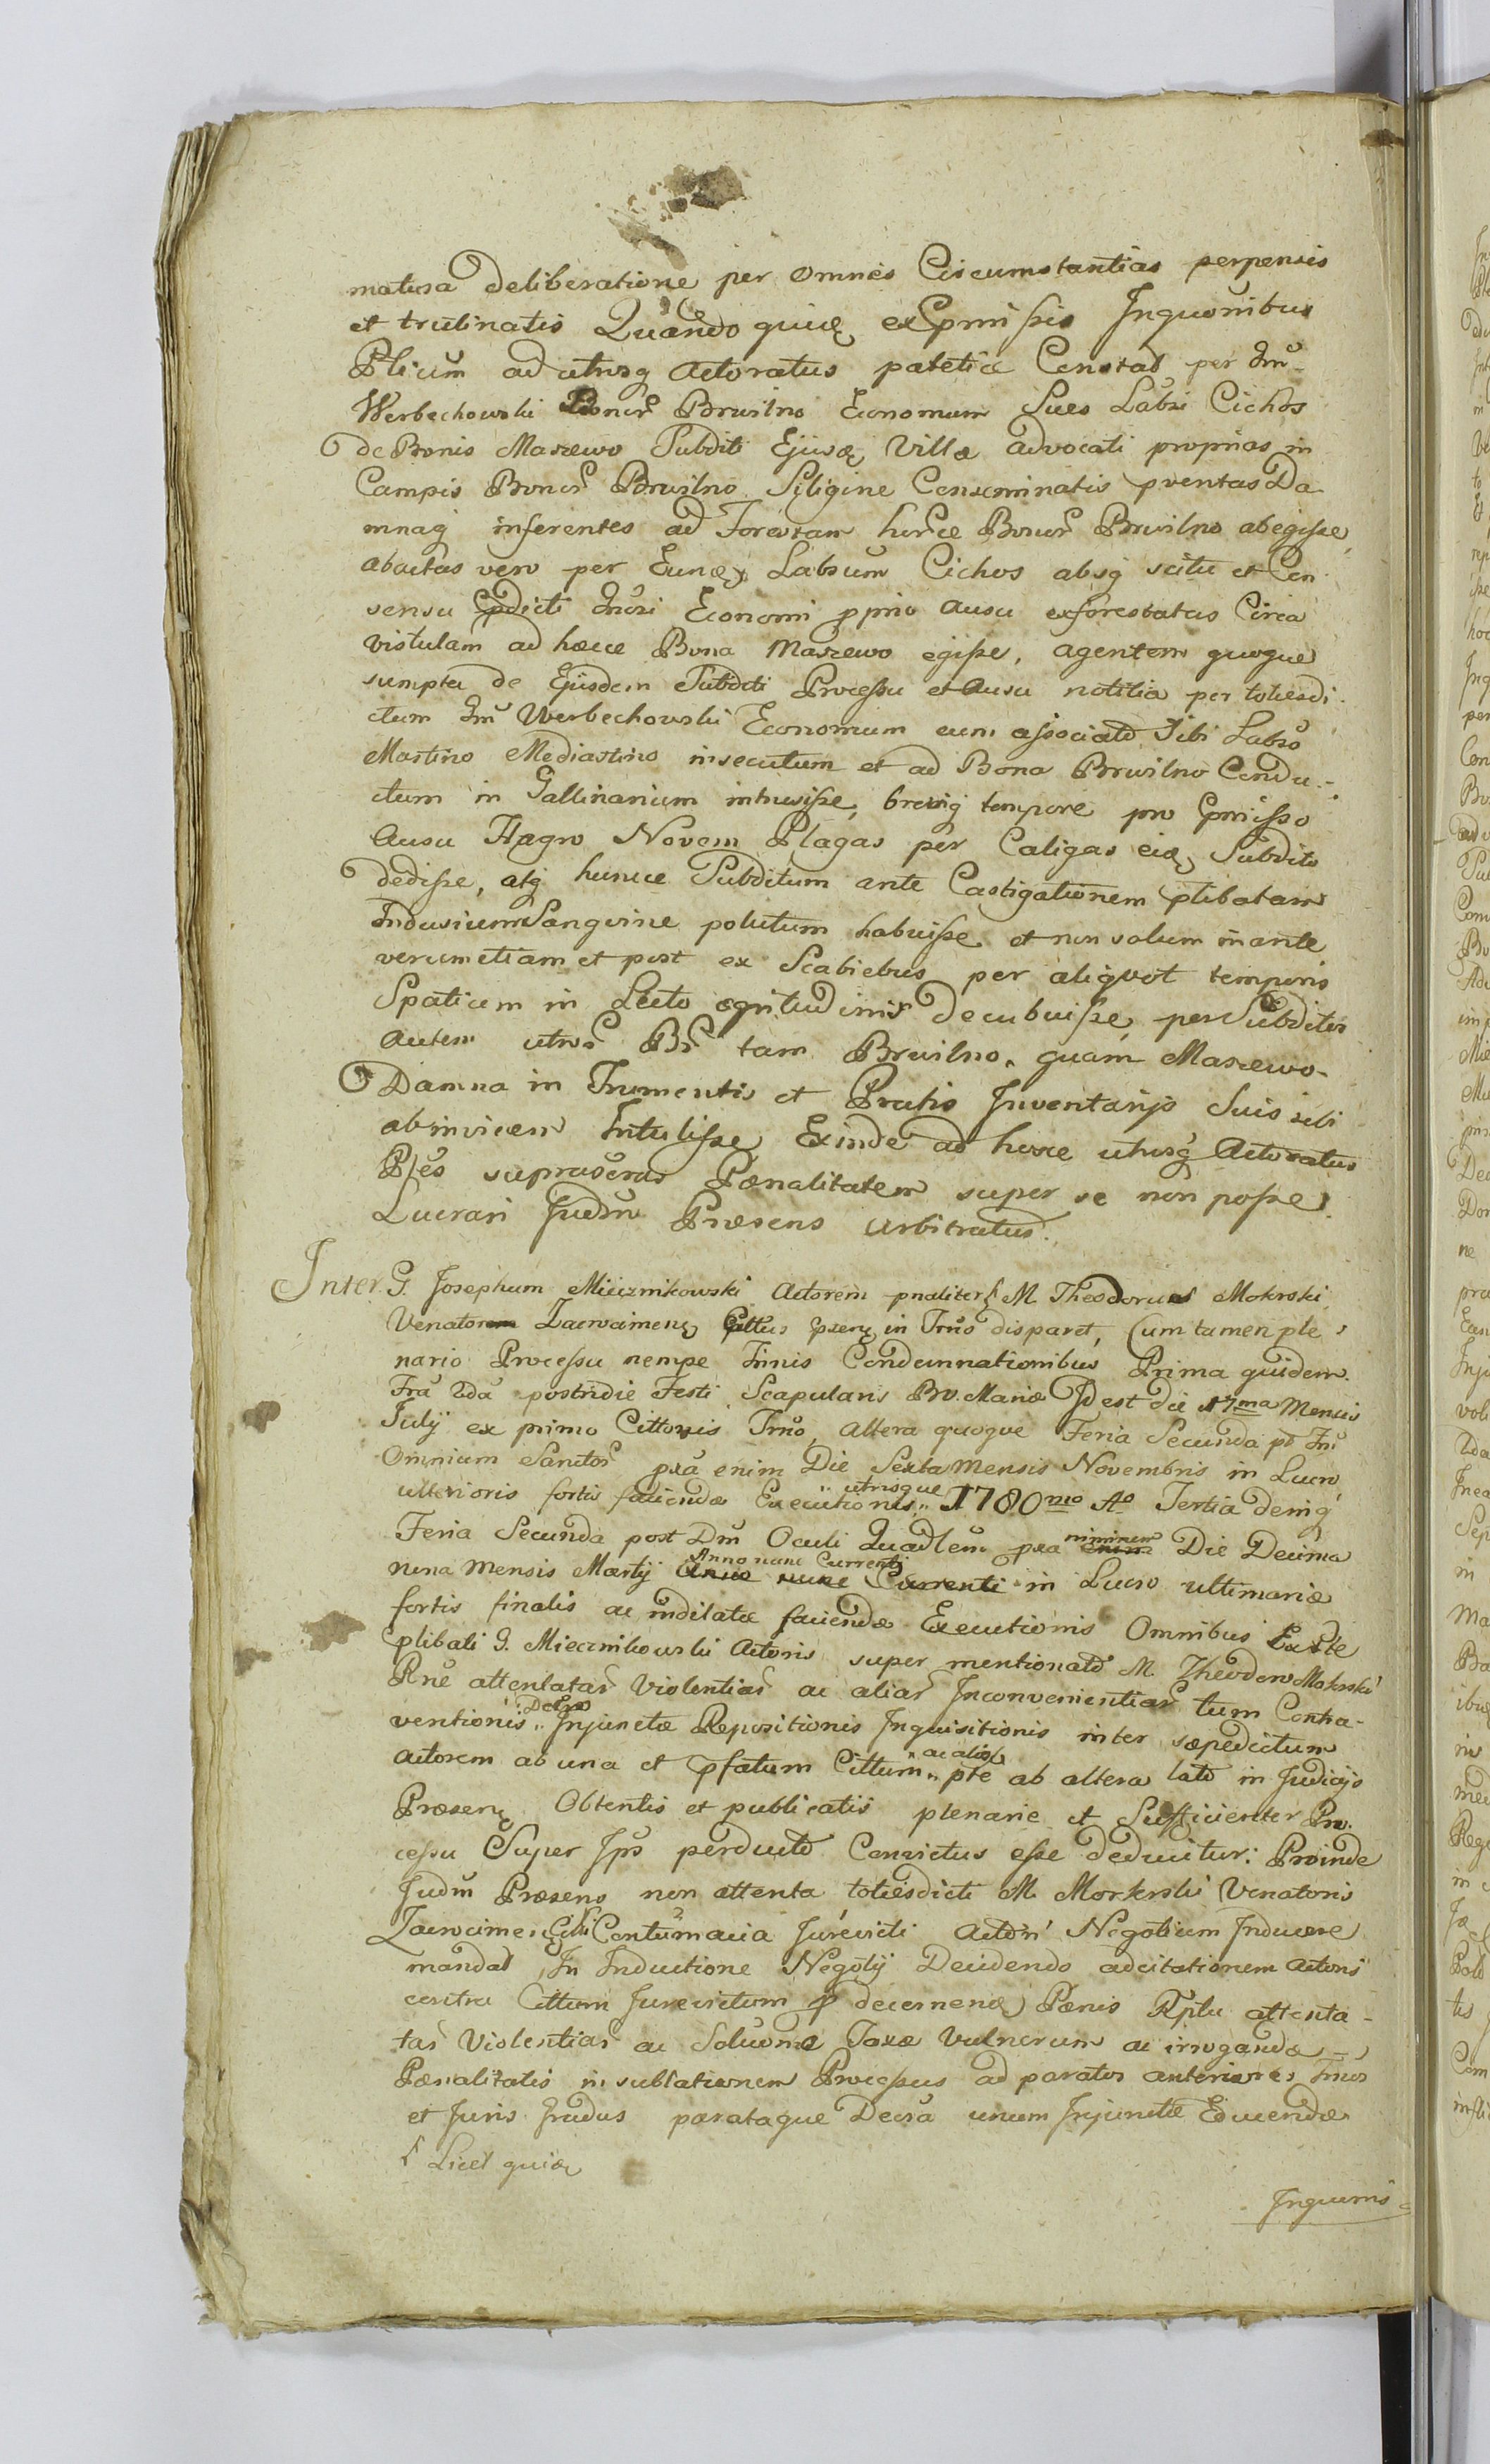 matura deliberatione per omnes Circumstantias perpensis
et trutinatis Quando quidę ex Epmissis Inquonibus
Pticum ad utrusq actoratus patetice Constat per Gnũ
Werbechowski Bonor Brwilno Economum Sues Labri Cichos
de Bonis Maszewo Subditi Ejusdę Villæ advocati proprias in
Campis Bonor Brwilno Siligine Conseminatis pventas Da
mnaq inferentes ad Forestam horce Bonor Brwilno abegisse,
abactas vero per Eundę Labrum Cichos absq scitu et Con
sensu Epdicti Gnõsi Economi pprio ausu exforestatas Circa
vistulam ad hæce Bona Maszewo egisse, agentem quoque
sumpta de Ejusdem Subditi Processu et Ausu notitia per totiesdi
ctum Gnũ Werbechowski Economum cum associato Sibi Labrõ
Martino Mediastino insecutum et ad Bona Brwilno Condu-
ctum in Gallinarium intrusisse, breviq tempore pro Epmisso
Ausu Flagro Novem Plagas per Caligas eidę Subdito
dedisse, atq hunce Subditum ante Castigationem ptibatam
Indusium Sangvine polutum habuisse et non solum inante
verum etiam et post ex Scabiebus per aliqvot temporis
Spatium in Lecto ægritudinis decubuisse, per Subditos
autem utror Br tam Brwilno, quam Maszewo
Damna in Frumentis et Pratis Inventarijs Suis sibi
abinvicem Intulisse Exinde ad horce utrusq Actoratus
Ptes supraseras Pænalitatem super se non posse
Lucrari Judm Præsens arbitratus.
Inter G. Josephum Miecznikowski Actorem pnaliter & M. Theodorum Mokrski
Venatorem Zacwcimenę Cittus pxenę in Trno disparet, Cum tamen ple
nario Processu nempe Trinis Condemnationibus Prima quidem
Fra 2da postridie Festi Scapularis Bv. Mariæ Id est die 17ma Mensis
July ex primo Cittonis Trno, Altera quoque Feria Secunda pt Fm
Omnium Sanctor pxa enim Die Sexta Mensis Novembris in Lucro
ulterioris fortis faciendæ Executionis „utrusque„ 1780mo Ao Tertia deniq
Feria Secunda post Dm Oculi Quadlem pxa nimirum enim Die Decima
nona Mensis Martij Anno nunc Currenti Anno nunc Currenti in Lucro ultimariæ
fortis finalis ac indilatæ faciendæ Executionis Omnibus Ex Pte
Eplibati G. Miecznikowski Actoris super mentionato M. Theodoro Mokrski
Rne attentatar Violentiar ac aliar Inconvenientiar tum Contra-
ventionis „Decto Injunctæ Repositionis Inquisitionis inter sæpedictum
Actorem ab una et pfatum Cittum „ac alios„ pte ab altera lato in Judicijs
Præsenę Obtentis et publicatis plenarie et Sufficienter Pro-
cessu Super Ips perducto Convictus esse deducitur: Proinde
Judm Præsens non attenta totiesdicti M. Mokrski Venatoris
Zacwcimenę Citti Contumacia Jurevicti Actori Negotium Inducere
mandat, In Inductione Negotij Decidendo adcitationem Actoris
contra Cittum Jurevictum p decernenę Pænis Rptu attenta-
tar Violentiar ac Solucionæ Taxæ Vulnerum ac irrogandæ
Pænalitatis in sublationem Processus ad paratos anteriores Trnos
et Juris Gradus parataque Decra unum Injunctæ Educendæ
& Licet quidę
Inquonis